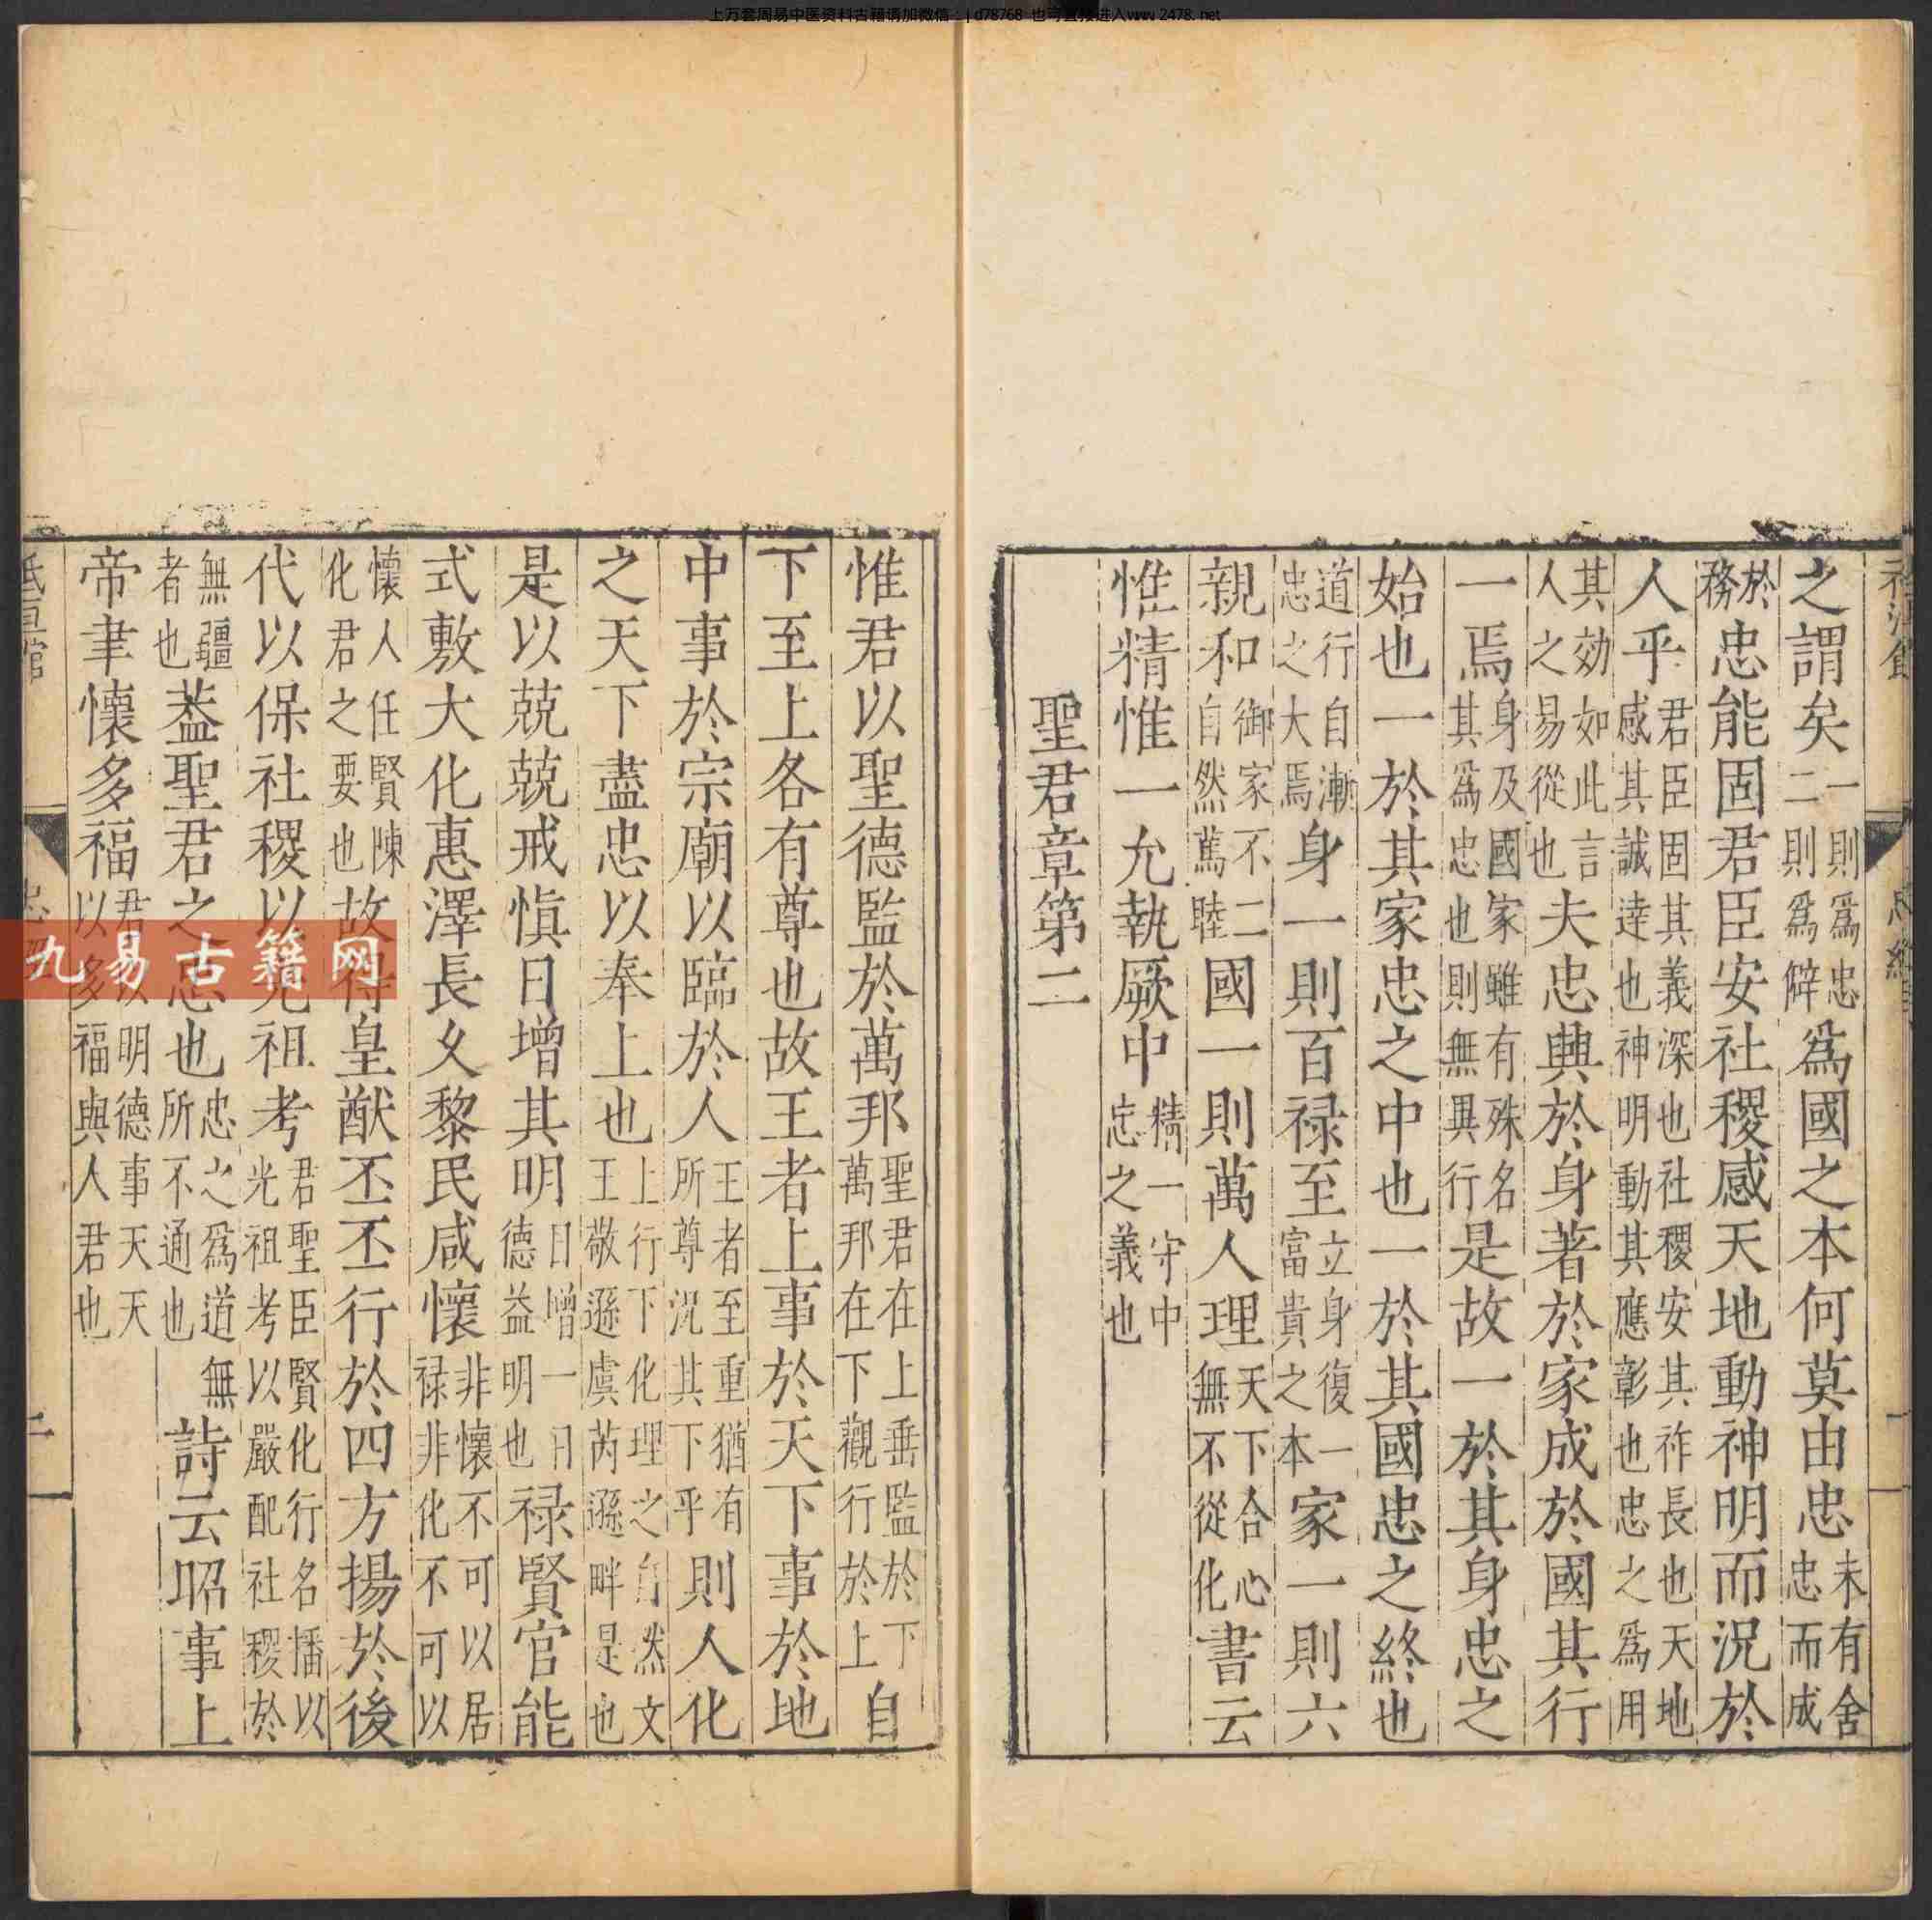 上万套周易中医资料古籍请加微信：jd78768 也可直接进入www.2478.net
之謂矣一則爲忠二則爲僻爲國之本何莫由忠未有舍忠而成
於務忠能固君臣安社稷感天地動神明而況於
人乎君臣固其義深也社稷安其祚長也天地感其誠達也神明動其應彰也忠之爲用
其効如此言人之易從也夫忠興於身著於家成於國其行
一焉身及國家雖有殊名其爲忠也則無異行是故一於其身忠之
始也一於其家忠之中也一於其國忠之終也
道行自漸忠之大焉身一則百禄至立身復一富貴之本家一則六
親和御家不二自然篤睦國一則萬人理天下合心無不從化書云
惟精惟一允執厥中精一守中忠之義也
聖君章第二
惟君以聖德監於萬邦聖君在上垂監於下萬邦在下觀行於上自
下至上各有尊也故王者上事於天下事於地
中事於宗廟以臨於人王者至重猶有所尊況其下乎則人化
之天下盡忠以奉上也上行下化理之自然文王敬遜虞芮遜畔是也
是以兢兢戒慎日增其明日增一日德益明也禄賢官能
式敷大化惠澤長久黎民咸懷非懷不可以居禄非化不可以
懷人任賢陳化君之要也故得皇猷丕丕行於四方揚於後
代以保社稷以光祖考君聖臣賢化行名播以光祖考以嚴配社稷於
無疆者也葢聖君之忠也忠之爲道無所不通也詩云昭事上
帝聿懷多福君以明德事天天以多福與人君也
二
九易古籍网